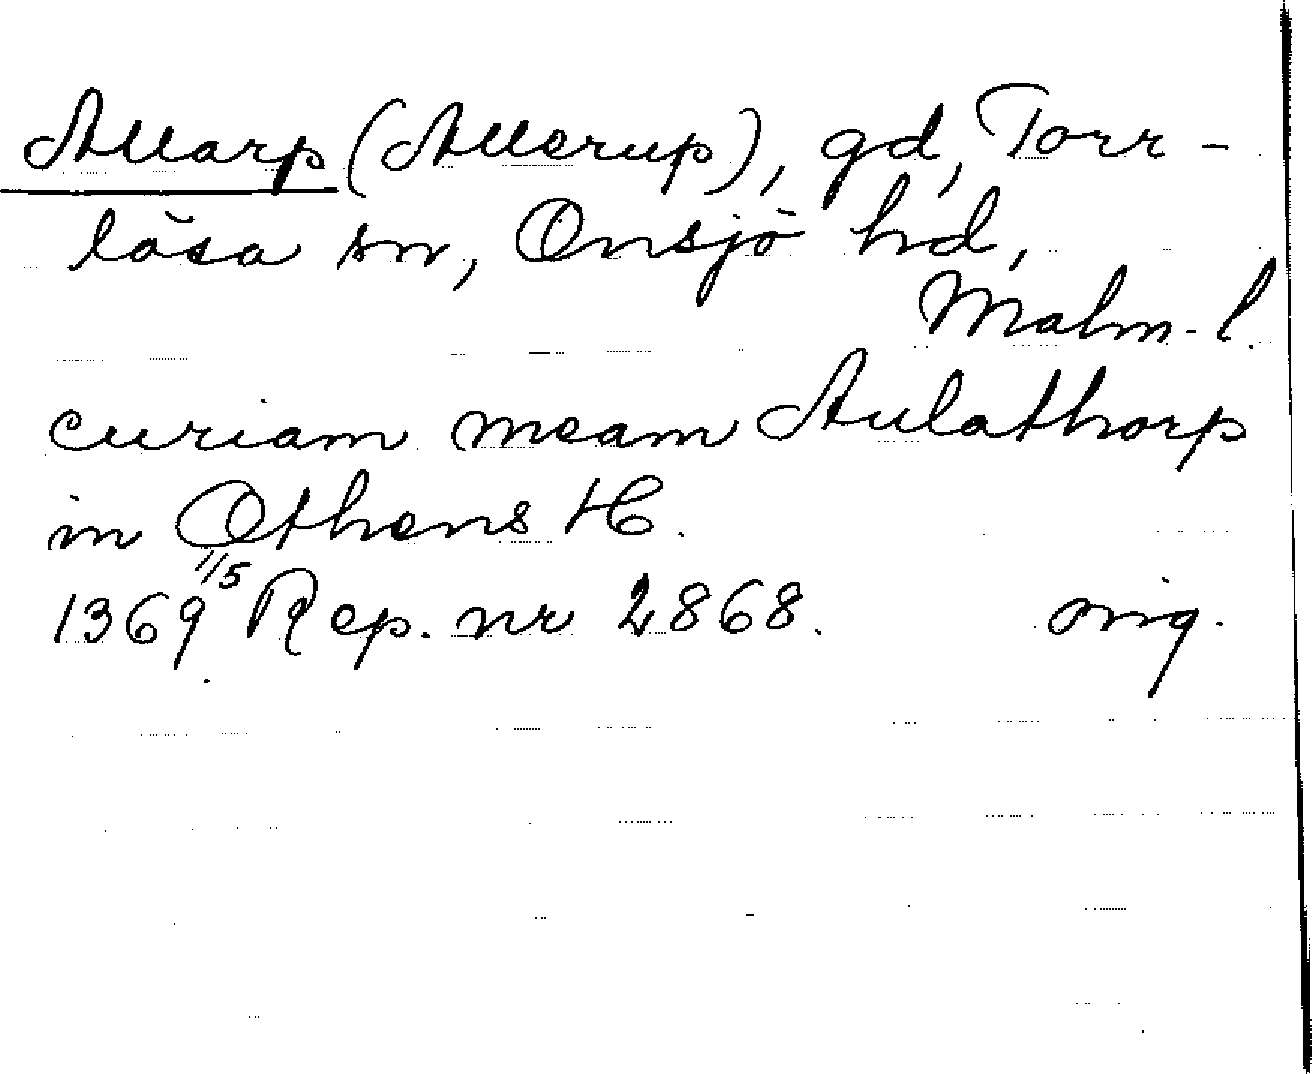 Allarp (Allerup), gd, Torr-
lösa sn, Onsjö hd,
Malm-l.
curiam meam Aulathorp
in Othens H.
1369 1/5 Rep. nr 2868. orig.